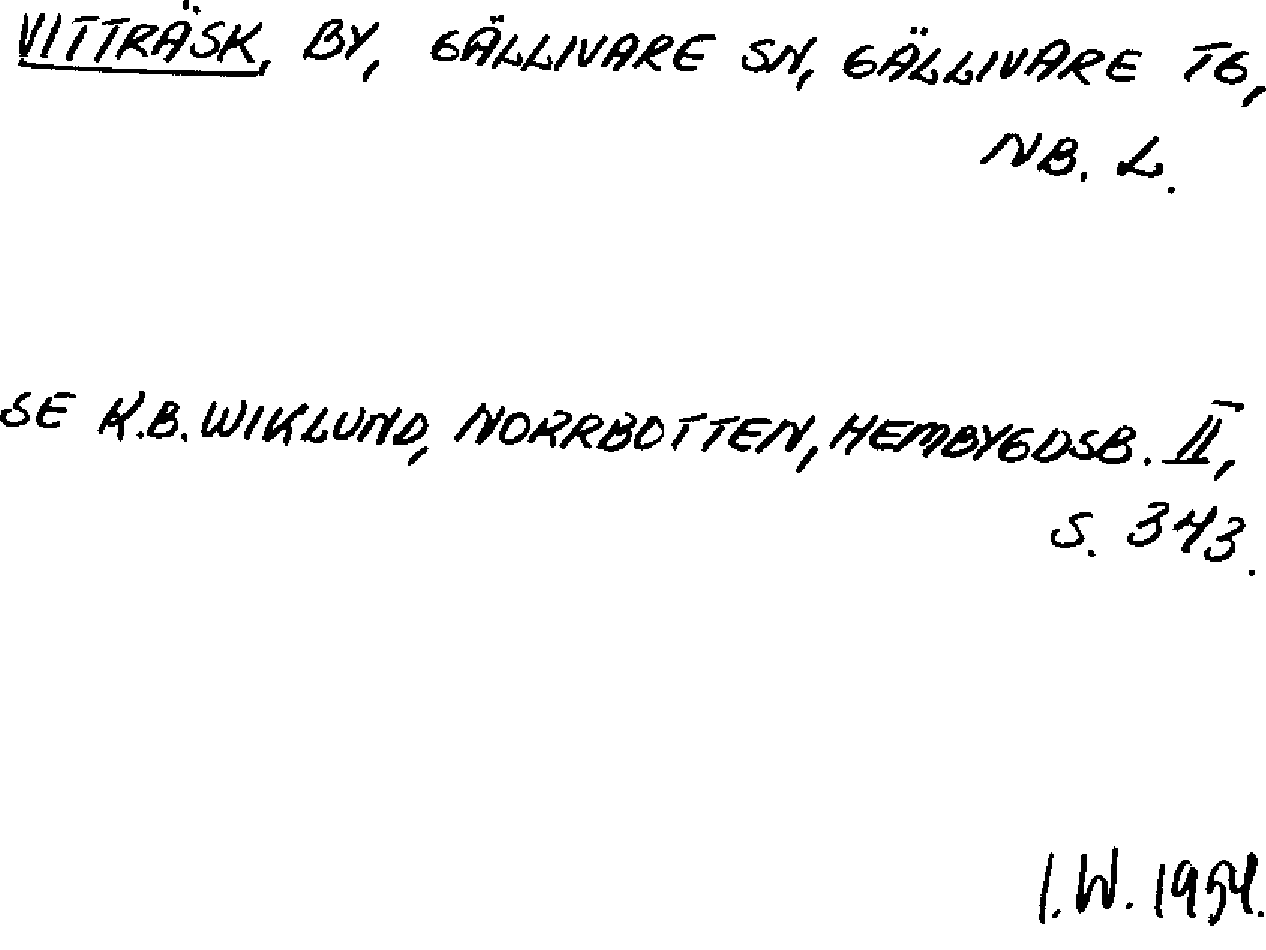 VITTRÄSK, BY, GÄLLIVARE SN, GÄLLIVARE TG,
NB. L.
SE K.B. WIKLUND, NORRBOTTEN, HEMBYGDSB. II,
S. 343.
I.W. 1954.